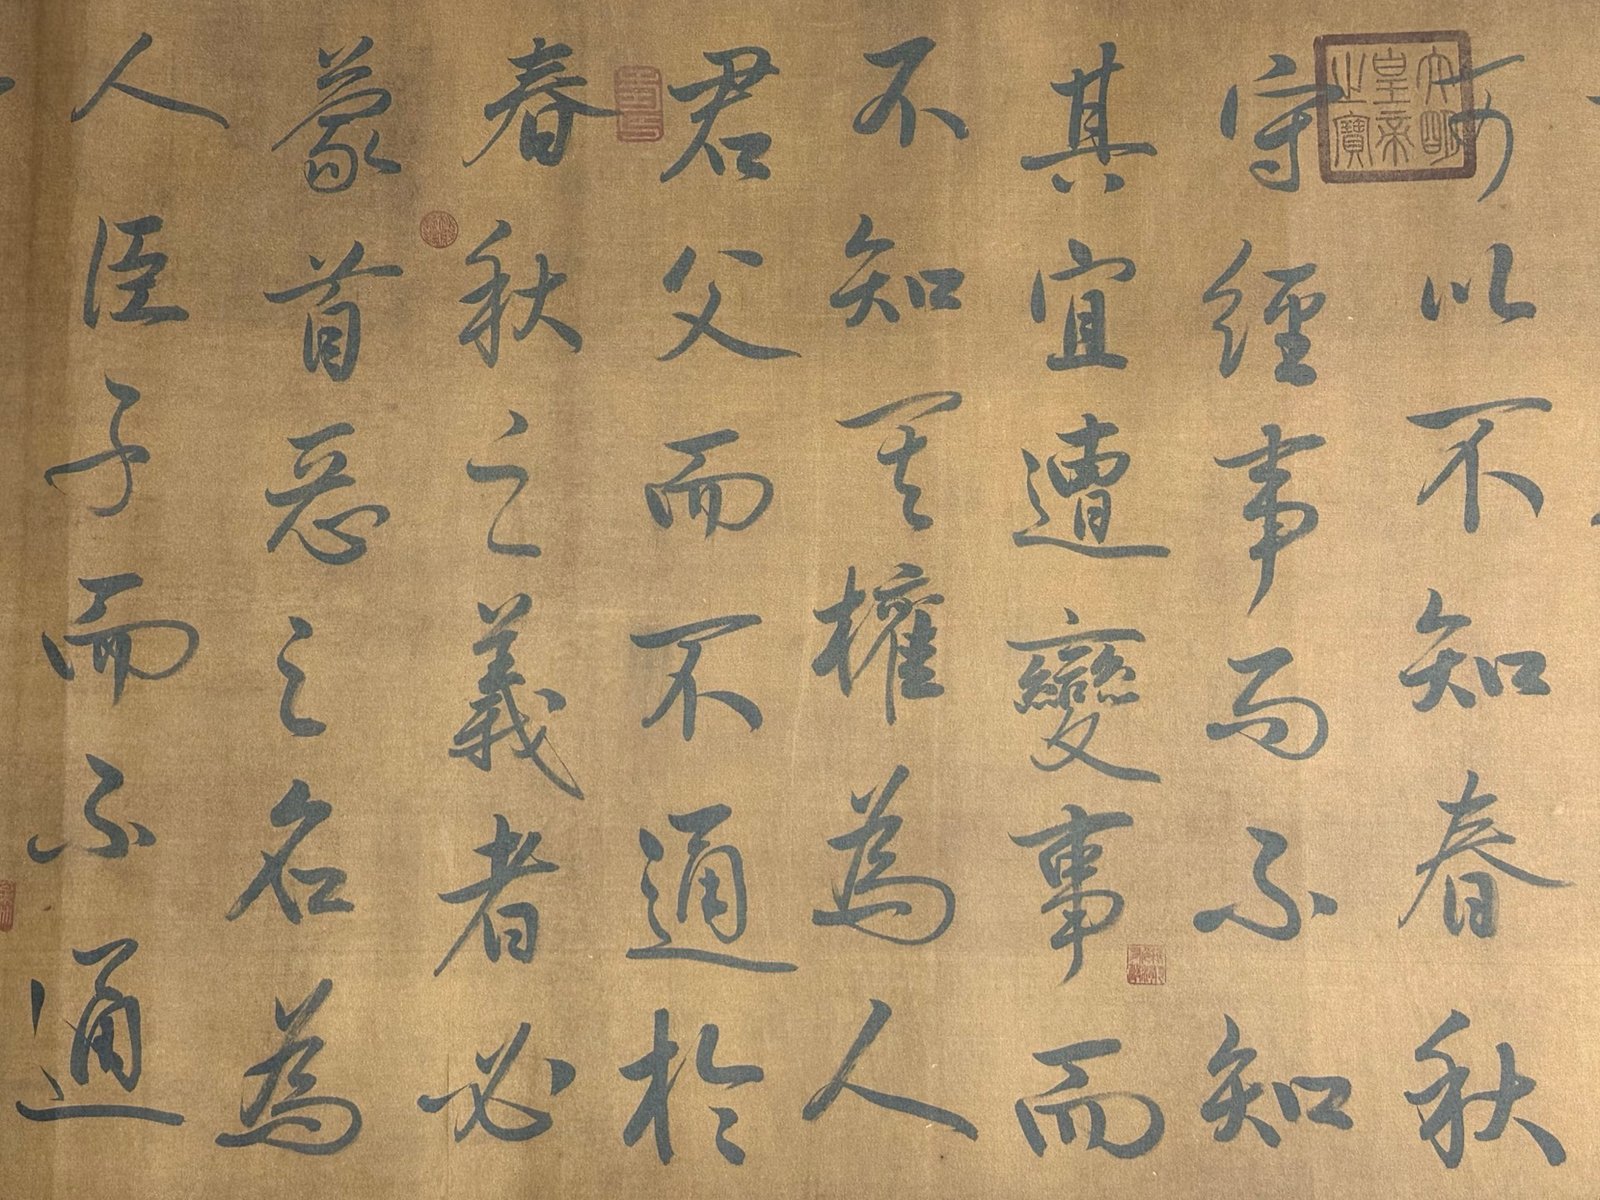 可以不知春秋
守經事而不知
其宜遭變事而
不知其權為人
君父而不通於
春秋之義者必
蒙首惡之名為
人臣子而不通
皇帝
之寶